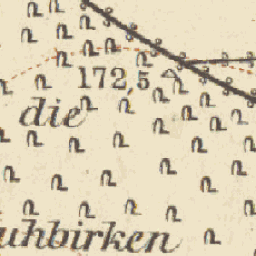 172,5
die
uhbirken